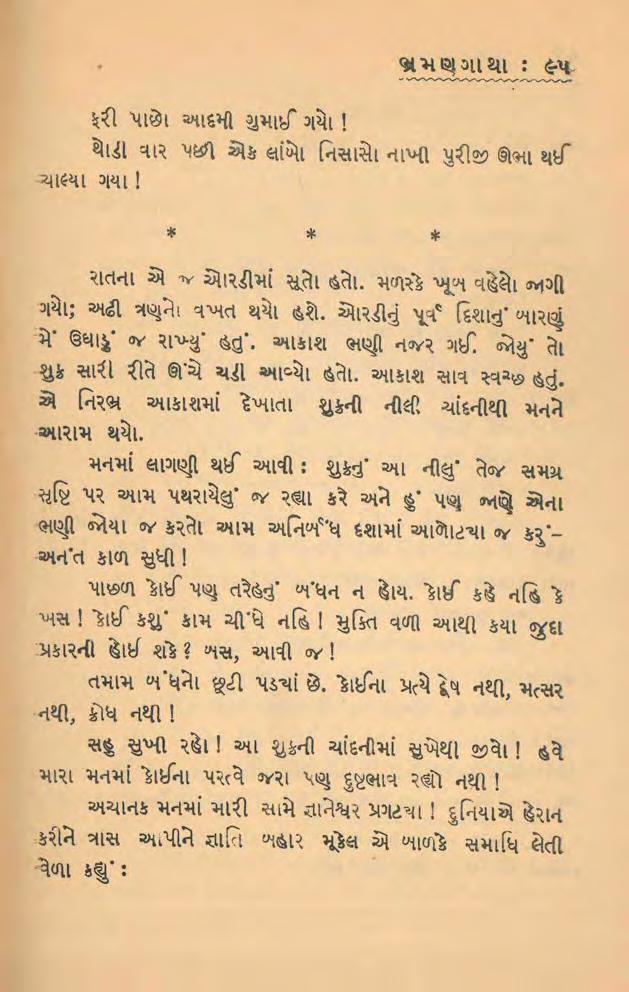 ભ્રમણગાથા : ૯૫
ફરી પાછો આદમી ગુમાઈ ગયો !
થોડી વાર પછી એક લાંબો નિસાસો નાખી પુરીજી ઊભા થઈ
ચાલ્યા ગયા !
* * *
રાતના એ જ ઓરડીમાં સૂતો હતો. મળસ્કે ખૂબ વહેલો જાગી
ગયો; અઢી ત્રણનો વખત થયો હશે. ઓરડીનું પૂર્વ દિશાનું બારણું
મેં ઉઘાડું જ રાખ્યું હતું. આકાશ ભણી નજર ગઈ. જોયું તો
શુક્ર સારી રીતે ઊંચે ચડી આવ્યો હતો. આકાશ સાવ સ્વચ્છ હતું.
એ નિરભ્ર આકાશમાં દેખાતા શુક્રની નીલી ચાંદનીથી મનને
આરામ થયો.
મનમાં લાગણી થઈ આવી : શુક્રનું આ નીલું તેજ સમગ્ર
સૃષ્ટિ પર આમ પથરાયેલું જ રહ્યા કરે અને હું પણ જાણે એના
ભણી જોયા જ કરતો આમ અનિર્બંધ દશામાં આળોટ્યા જ કરું–
અનંત કાળ સુધી !
પાછળ કોઈ પણ તરેહનું બંધન ન હોય. કોઈ કહે નહિ કે
ખસ ! કોઈ કશું કામ ચીંધે નહિ ! મુક્તિ વળી આથી કયા જુદા
પ્રકારની હોઈ શકે ? બસ, આવી જ !
તમામ બંધનો છૂટી પડ્યાં છે. કોઈના પ્રત્યે દ્વેષ નથી, મત્સર
નથી, ક્રોધ નથી !
સહુ સુખી રહો ! આ શુક્રની ચાંદનીમાં સુખેથી જીવો ! હવે
મારા મનમાં કોઈના પરત્વે જરા પણ દુષ્ટભાવ રહ્યો નથી !
અચાનક મનમાં મારી સામે જ્ઞાનેશ્વર પ્રગટ્યા ! દુનિયાએ હેરાન
કરીને ત્રાસ આપીને જ્ઞાતિ બહાર મૂકેલ એ બાળકે સમાધિ લેતી
વેળા કહ્યું :